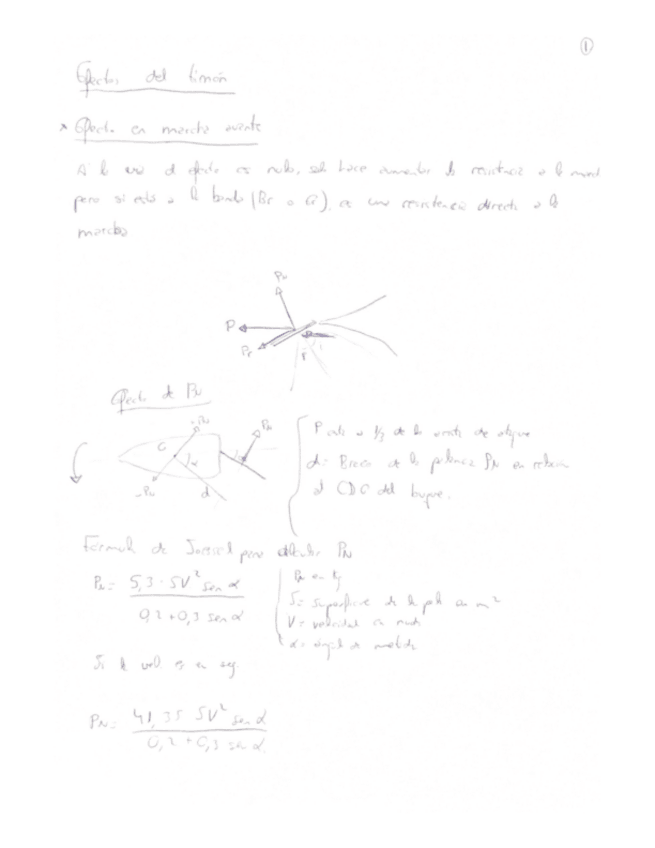 1
Efectos del timón
* Efecto en marcha avante
A la vía el efecto es nulo, solo hace aumentar la resistencia a la
pero si está a la banda (Br o Er), es una resistencia directa a la
marcha
PN
P
Pr
Efecto de PN
PN
PN
G
α
-PN
d
P a 1/3 de la de ataque
d = Brazo de la potencia PN en relación
al CDG del buque.
Fórmula de Joessel para calcular PN
PN = 5,3 · SV² sen α
0,2 + 0,3 sen α
PN en kg
S = superficie de la pala en m²
V = velocidad en nudos
α = ángulo de metida
Si la vel es en seg
PN = 41,35 SV² sen α
0,2 + 0,3 sen α